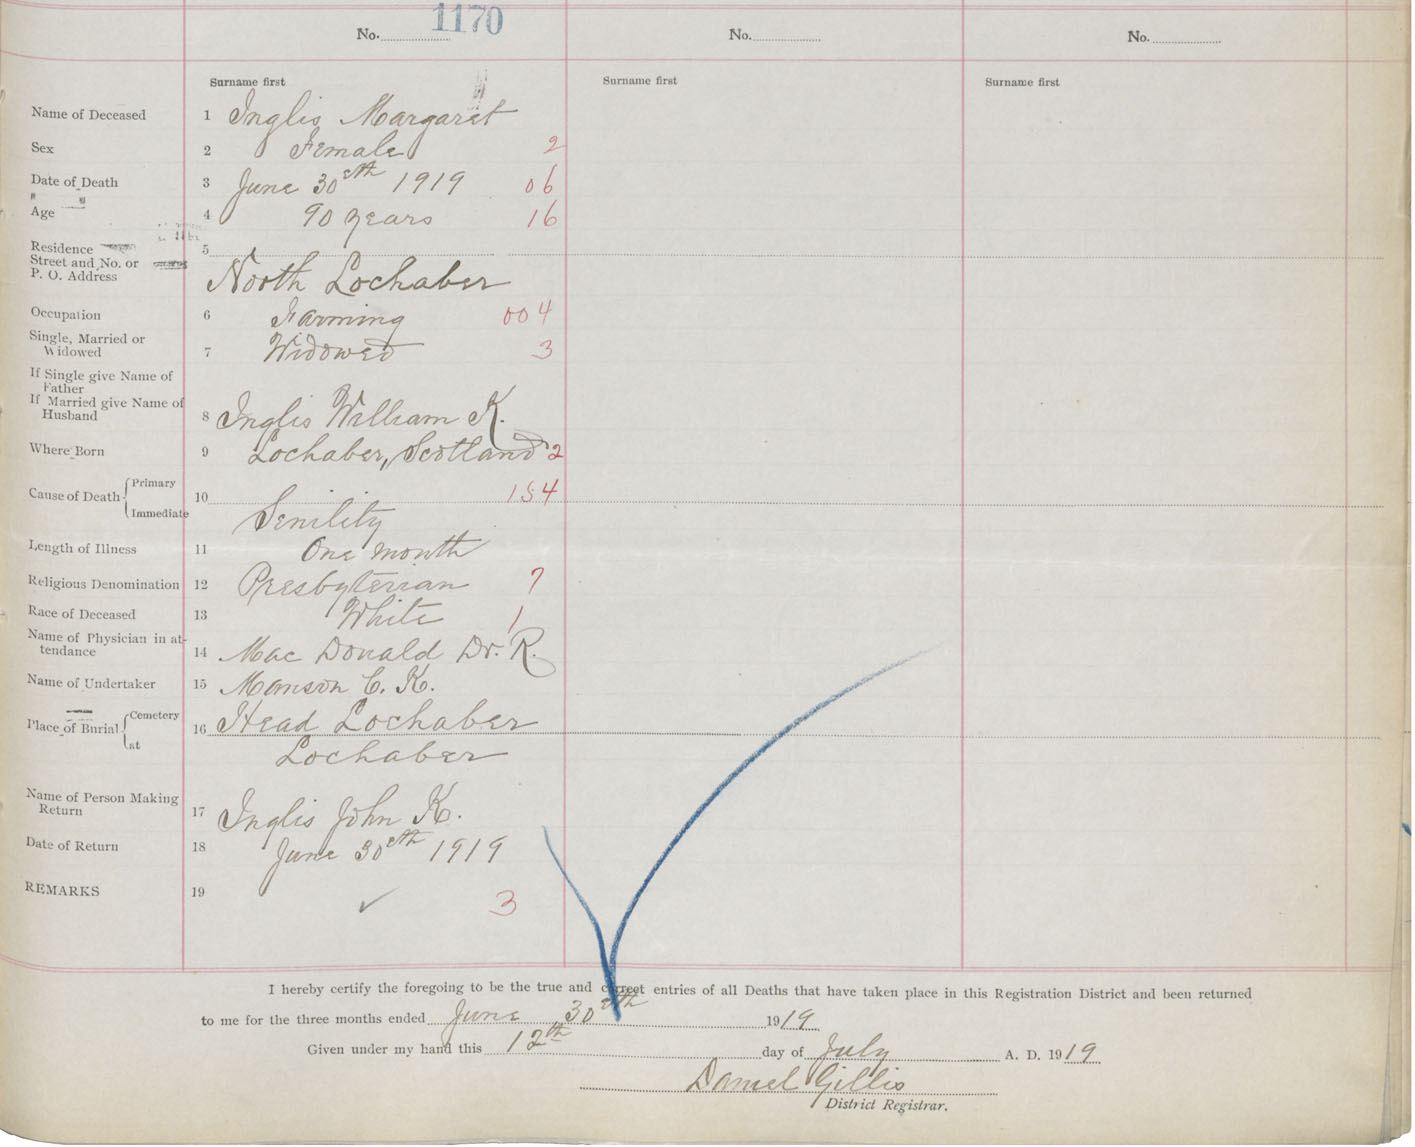 No. 1170 No. No.
Surname first Surname first Surname first
Name of Deceased 1 Inglis Margaret
Sex 2 Female 2
Date of Death 3 June 30th 1919 06
Age 4 90 years 16
Residence 5
Street and No. or
P. O. Address North Lochaber
Occupation 6 Farming 004
Single, Married or
Widowed 7 Widowed 3
If Single give Name of
Father
If Married give Name of
Husband 8 Inglis William K.
Where Born 9 Lochaber, Scotland 2
Cause of Death Primary 10 154
Immediate Senility
Length of Illness 11 One month
Religious Denomination 12 Presbyterian 7
Race of Deceased 13 White 1
Name of Physician in at-
tendance 14 Mac Donald Dr. R.
Name of Undertaker 15 Manson C. K.
Place of Burial Cemetery 16 Head Lochaber
at Lochaber
Name of Person Making
Return 17 Inglis John K.
Date of Return 18 June 30th 1919
REMARKS 19 3
I hereby certify the foregoing to be the true and correct entries of all Deaths that have taken place in this Registration District and been returned
to me for the three months ended June 30th 1919
Given under my hand this 12th day of July A. D. 1919
Daniel Gillis
District Registrar.